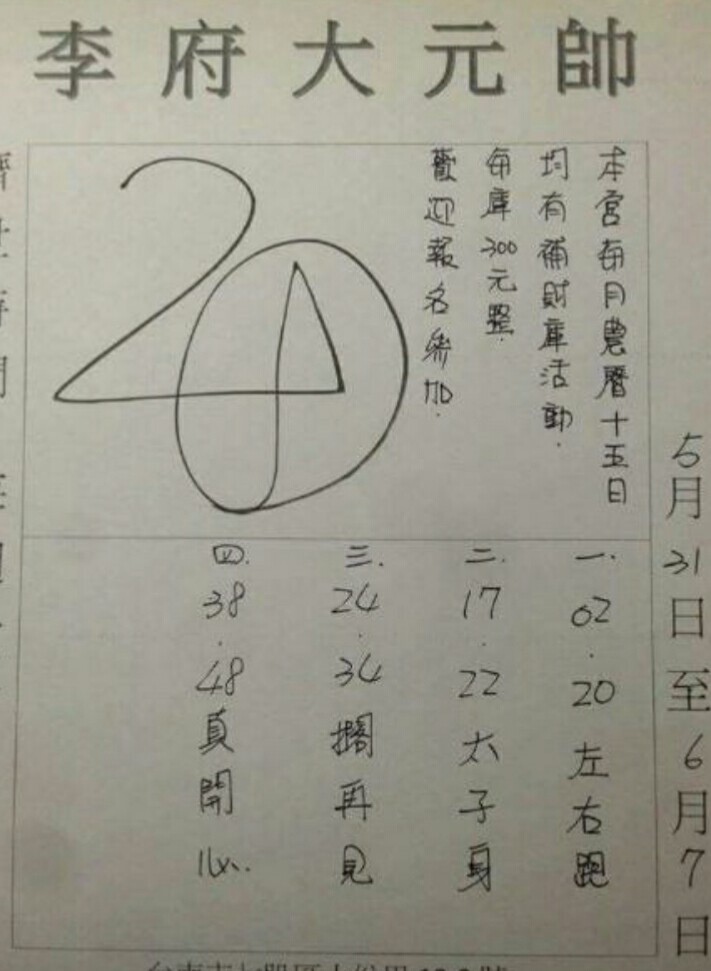 李府大元帥
本宮每月農曆十五日
均有補財庫活動.
每庫300元整.
歡迎報名參加.
20
5月31日至6月7日
一. 02.20左右跑
二. 17.22太子身
三. 24.34擱再見
四. 38.48真開心.